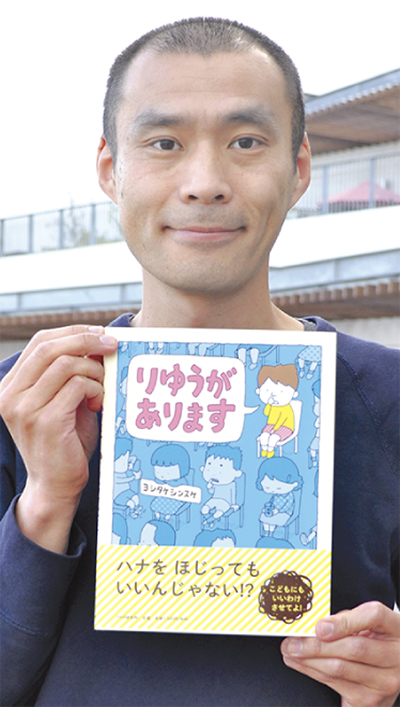 りゆうが
あります
ヨシタケシンスケ
ハナを ほじっても
いいんじゃない!?
こどもにも
いいわけ
させてよ!